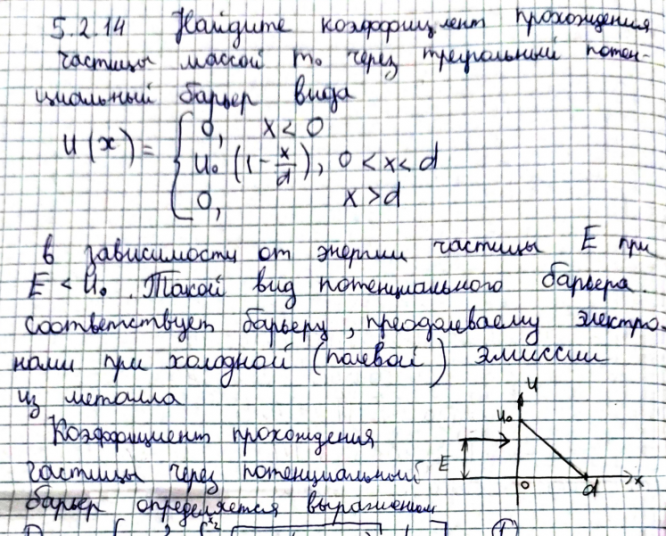 5.2.14 Найдите коэффициент прохождения
частицы массой m₀ через треугольный потен-
циальный барьер вида
U(x) = { 0, x < 0
U₀ (1 - x/d), 0 < x < d
0, x > d
в зависимости от энергии частицы E при
E < U₀. Такой вид потенциального барьера
соответствует барьеру, преодолеваему электро-
нами при холодной (полевой) эмиссии
из металла
Коэффициент прохождения
частицы через потенциальный
барьер определяется выражением
U
U₀
E
0
d
x